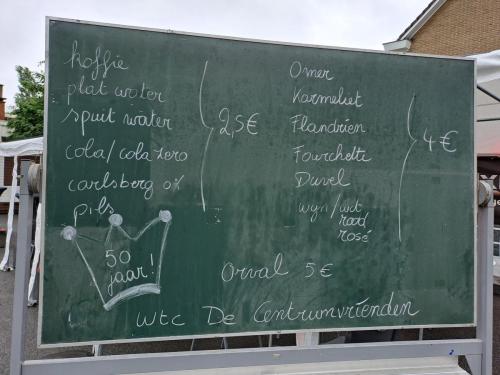 koffie
plat water
spuit water
cola/cola zero
carlsberg 0%
pils
2,5€
Omer
Karmeliet
Flandrien
Fourchette
Duvel
wijn/wit
rood
rosé
4€
50
jaar!
Orval 5€
wtc De Centrumvrienden